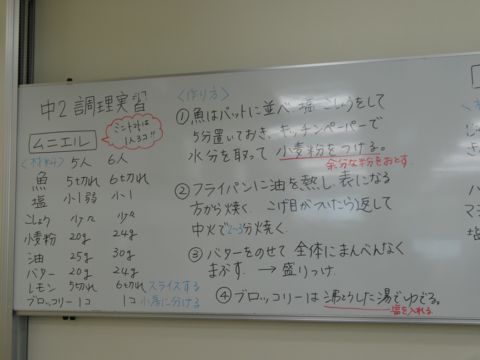 中2 調理実習
ムニエル
ミニトマトは
1人3コ!!
<材料> 5人 6人
魚 5切れ 6切れ
塩 小1弱 小1
こしょう 少々 少々
小麦粉 20g 24g
油 25g 30g
バター 20g 24g
レモン 5切れ 6切れ スライスする
ブロッコリー 1コ 1コ 小房に分ける
<作り方>
①魚はバットに並べ、塩、こしょうをして
5分置いておき、キッチンペーパーで
水分を取って小麦粉をつける。
余分な粉をおとす
②フライパンに油を熱し、表になる
方から焼く。こげ目がついたら返して
中火で2~3分焼く。
③バターをのせて全体にまんべんなく
まぶす。→盛りつけ
④ブロッコリーは沸とうした湯でゆでる。
塩を入れる